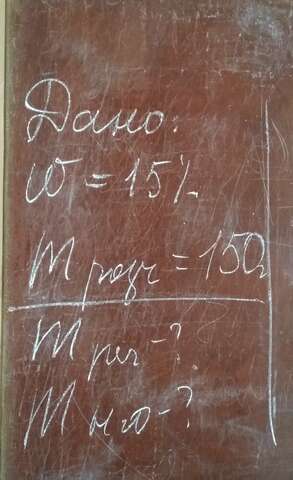 Дано:
W = 15%
m разч = 150г
m реч - ?
m н₂о - ?